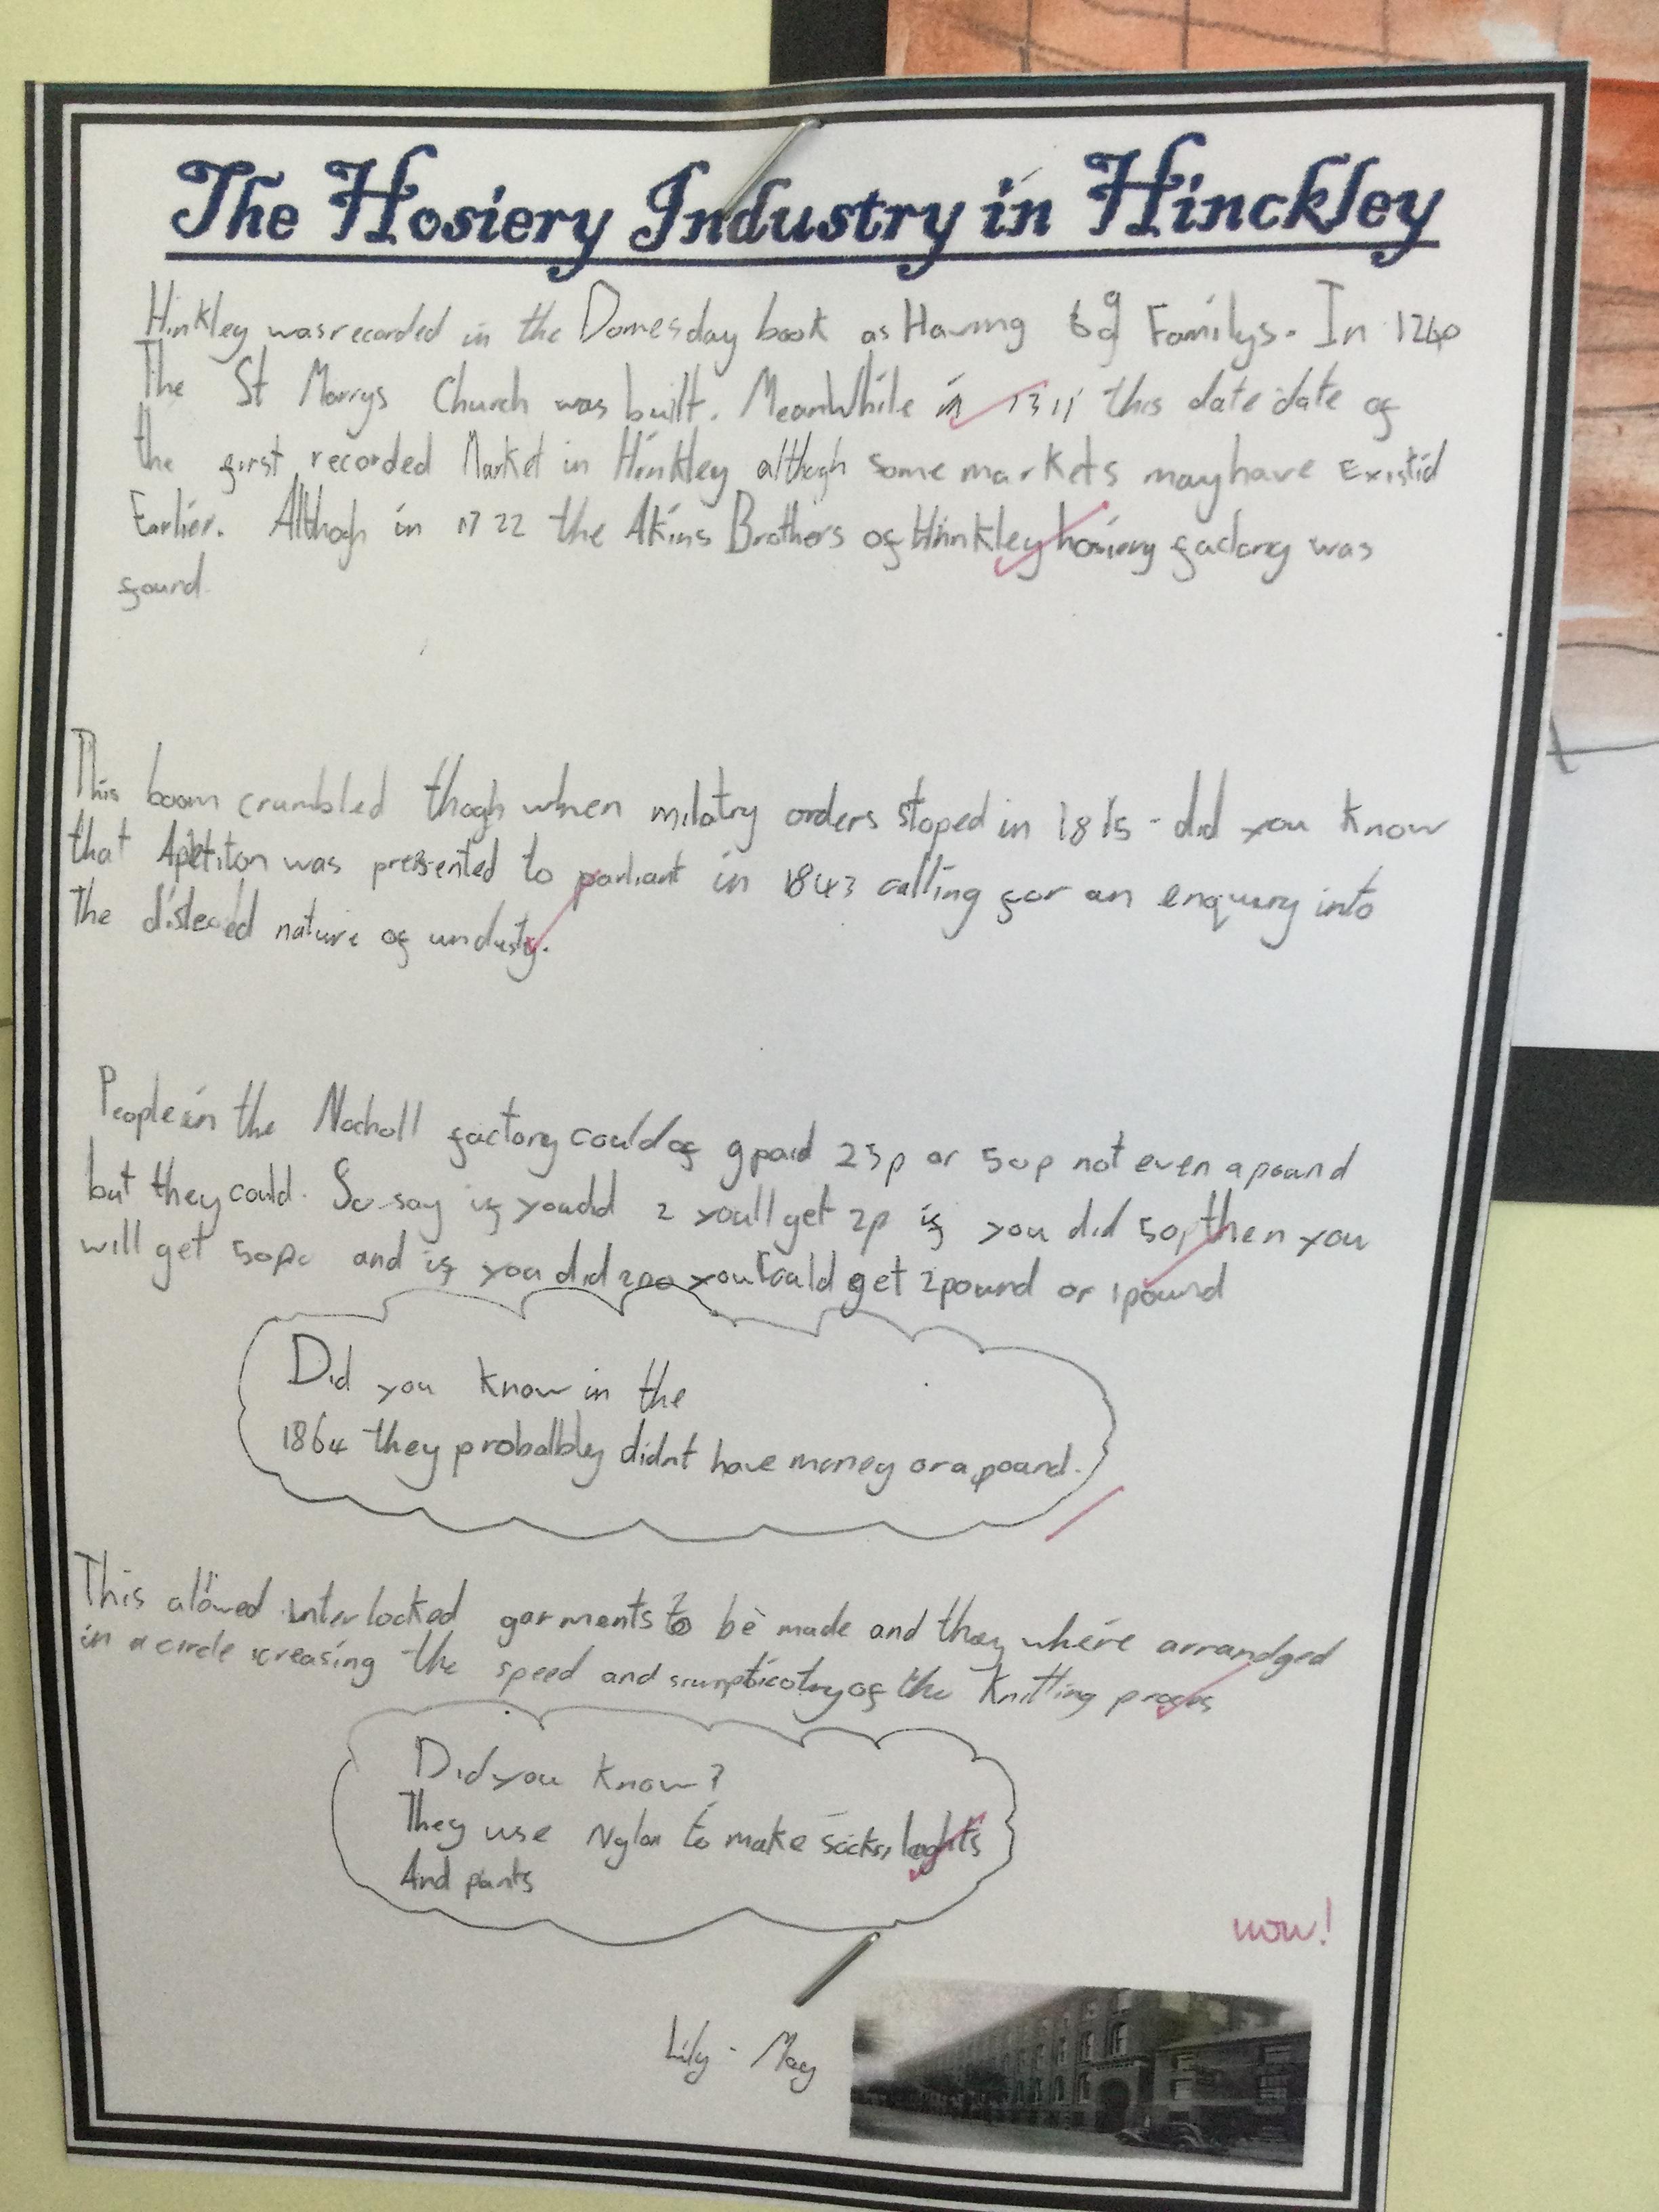 The Hosiery Industry in Hinckley
Hinkley was recorded in the Domesday book as Having 69 Familys. In 1240
The St Marrys Church was built. MeanWhile in 1311 this date date of
the first recorded Market in Hinkley although some markets may have Existid
Earlier. Although in 1722 the Akins Brothers of Hinkley hosiery factory was
found
This boom crumbled thogh when milatry orders stoped in 1815 - did you know
that Apetiton was presented to parliant in 1843 calling for an enquiry into
The nature of undusty.
People in the factory could of g paid 25p or 50p not even a pound
but they could. So say if you did 2 youll get 2p if you did 50p then you
will get 50p and if you did 200 you could get 2pound or 1pound
Did you know in the
1864 they probalbley didnt have money or a pound.
This allowed interlocked garments to be made and they where arrandged
in a circle icreasing the speed and of the Knitting proses
Did you know?
They use Nylon to make socks,
And pants
wow!
Lily-May